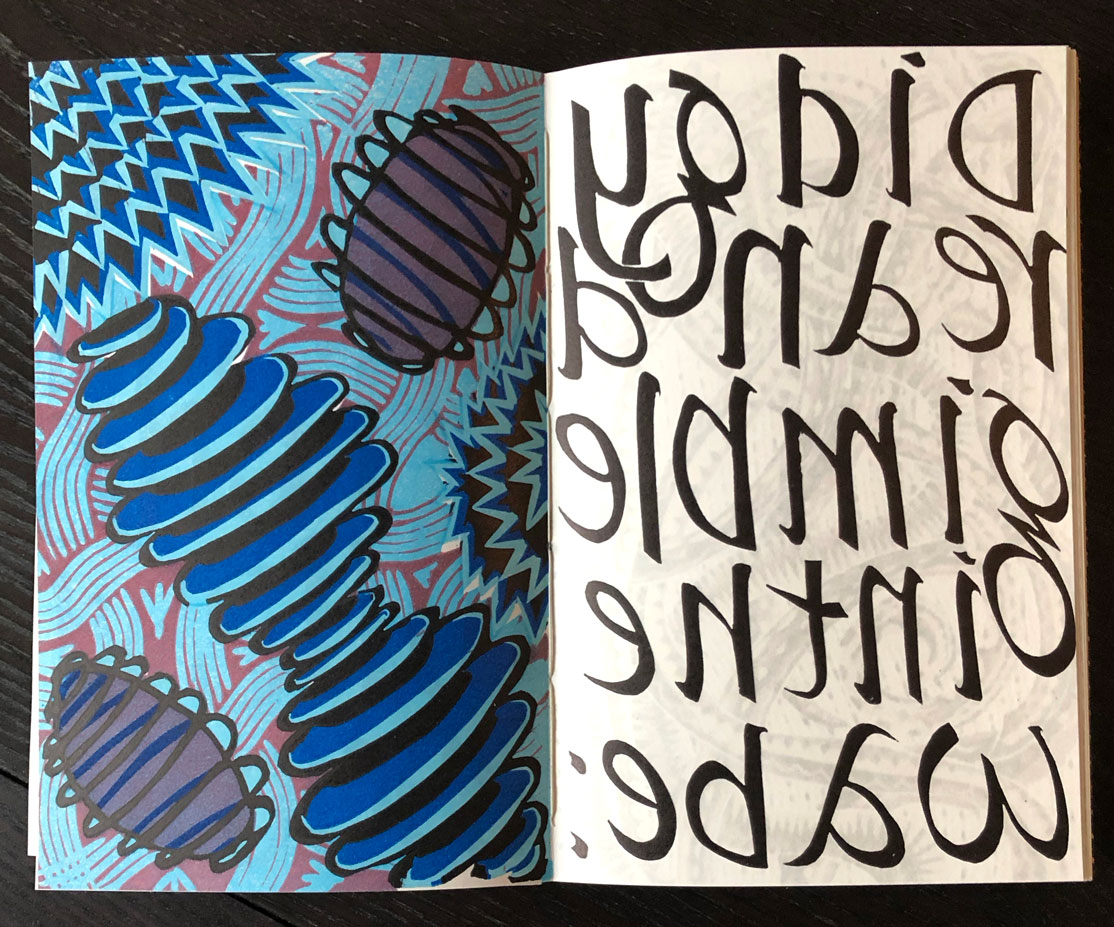 Did gy
re and
gimble
in the
wabe: